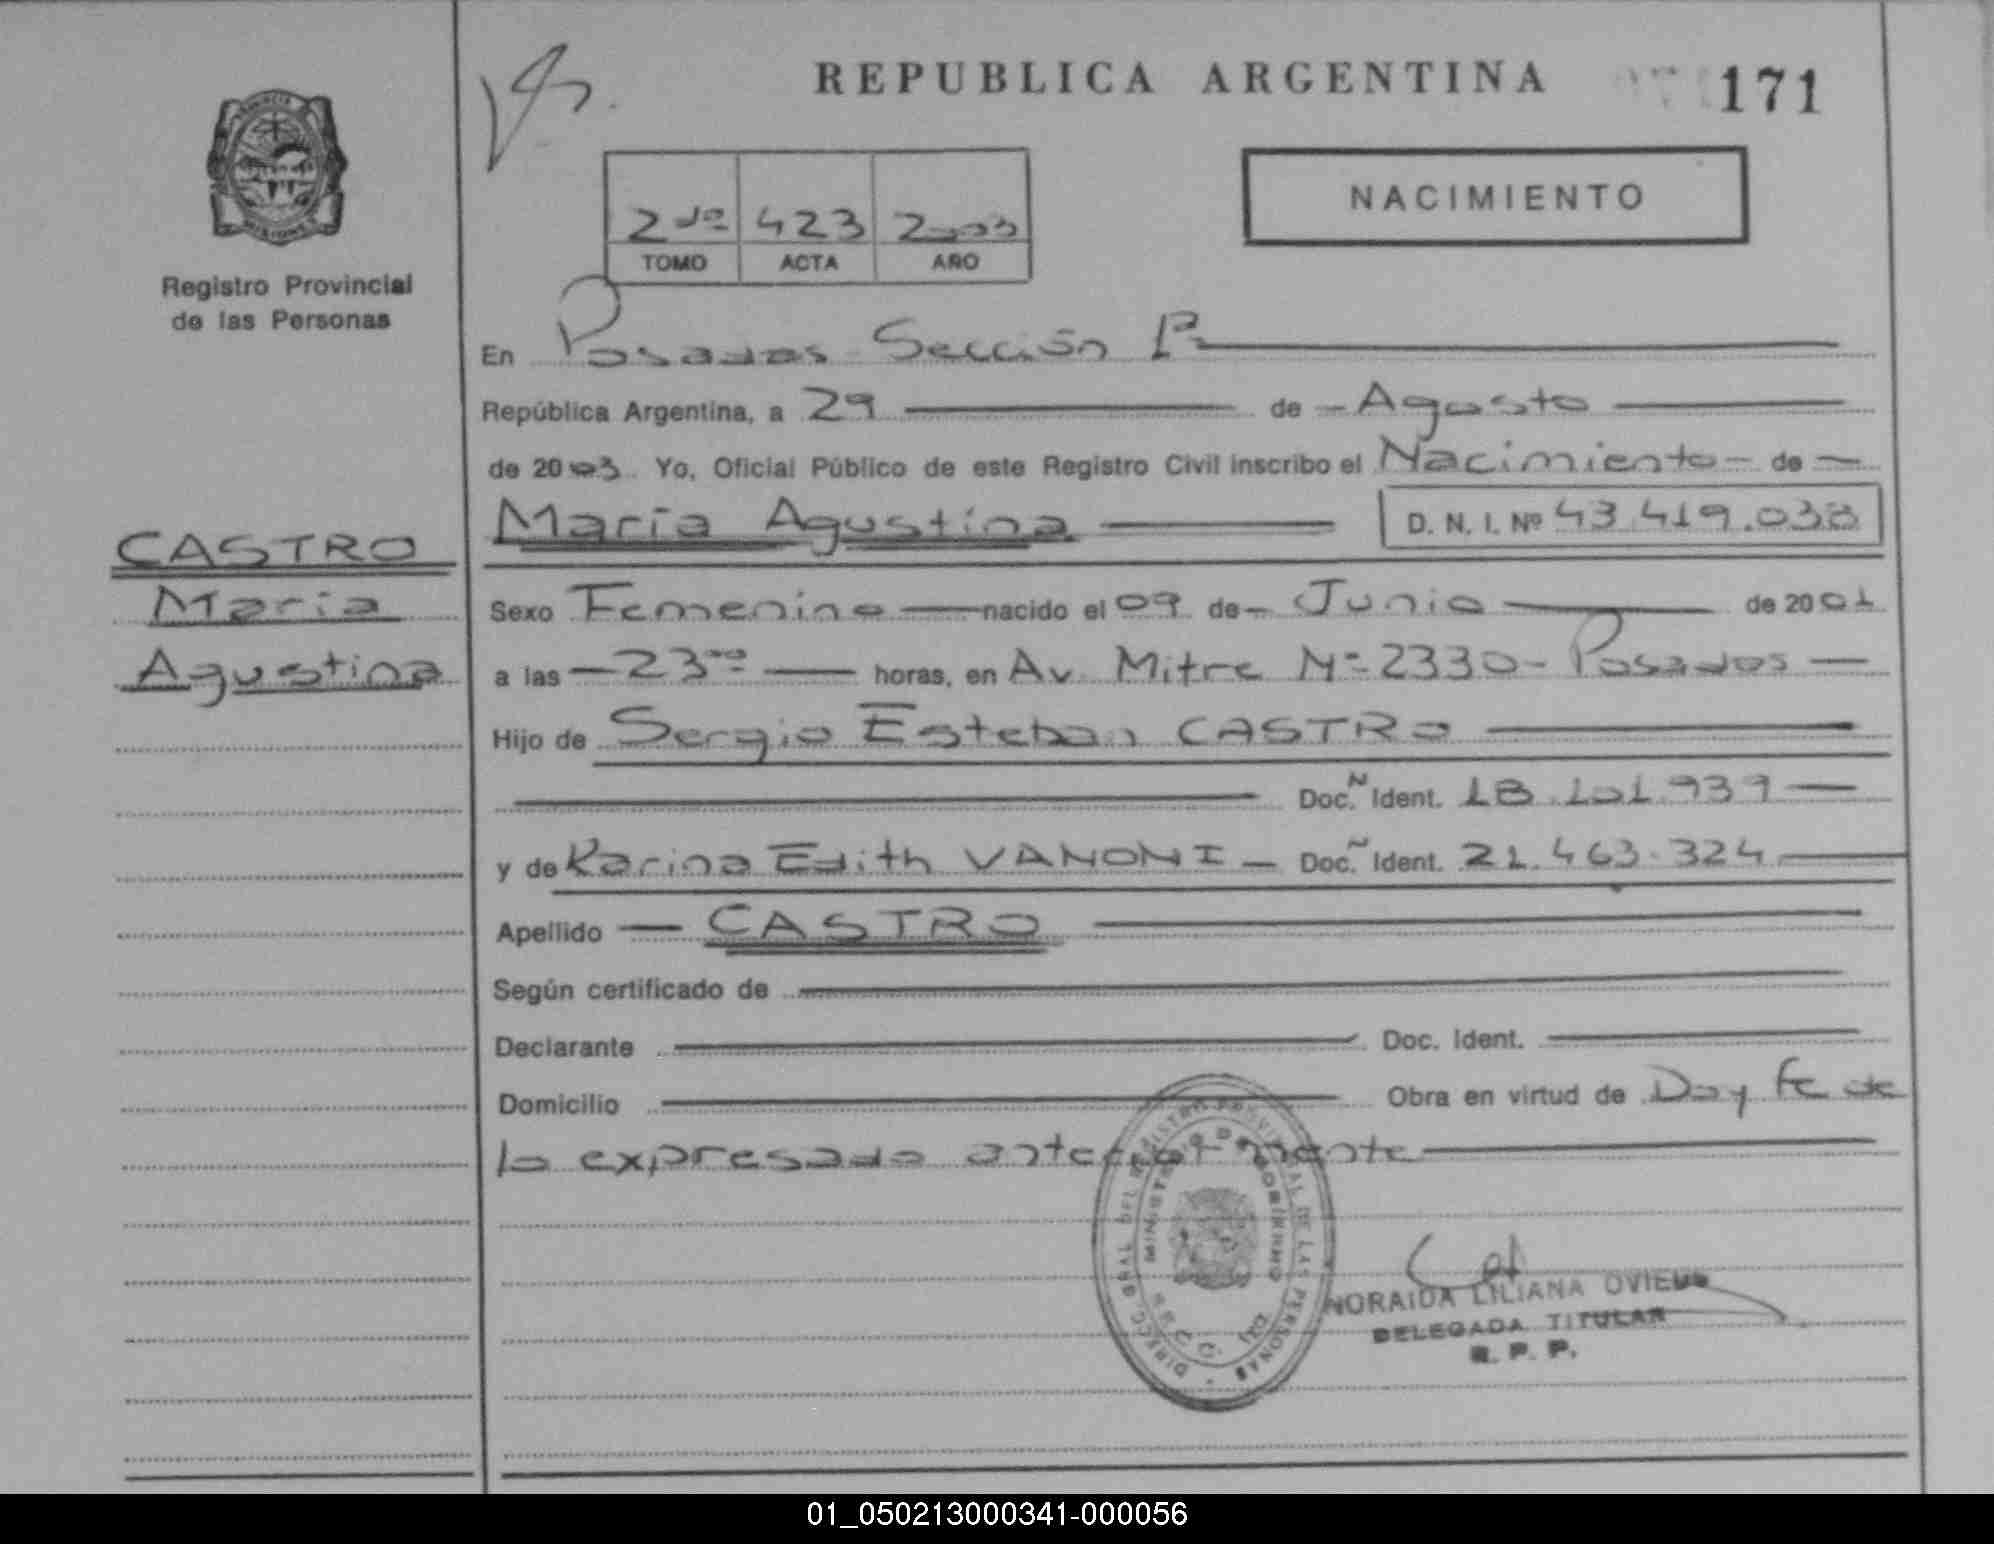 REPUBLICA ARGENTINA
171
NACIMIENTO
2do 423 2003
TOMO ACTA AÑO
Registro Provincial
de las Personas
En Posadas Sección 1ª
República Argentina, a 29 de Agosto
de 2003 Yo, Oficial Público de este Registro Civil inscribo el Nacimiento de
María Agustina D. N. I. Nº 43.419.038
CASTRO
María
Agustina
Sexo Femenino nacido el 09 de Junio de 2001
a las 23 horas, en Av. Mitre Nº 2330 - Posadas
Hijo de Sergio Esteban CASTRO
Doc. N Ident. 18.101.939
y de Karina Edith VANONI Doc. N Ident. 21.463.324
Apellido CASTRO
Según certificado de
Declarante Doc. Ident.
Domicilio Obra en virtud de Doy fe de
lo expresado anteriormente
DIRECC. GRAL DEL REGISTRO PROVINCIAL DE LAS PERSONAS
MINISTERIO DE GOBIERNO
NORAIDA LILIANA OVIEDO
DELEGADA TITULAR
R. P. P.
01_050213000341-000056